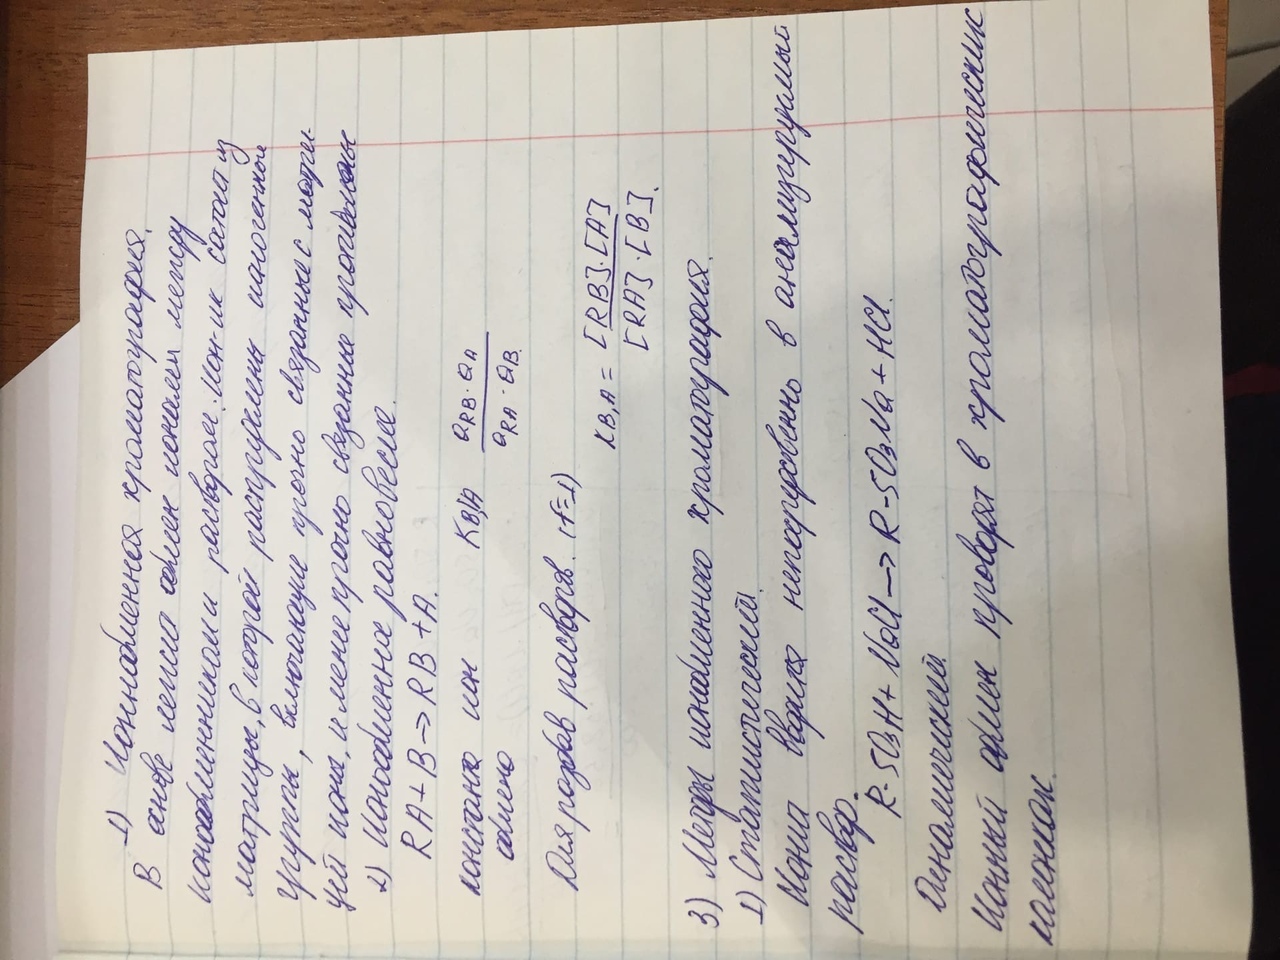 1) Ионнобменная хроматография.
В основе лежит обмен ионами между
ионообменником и раствором. Ион-ик состоит из
матрицы, в которой распределены ионогенные
группы, включающие прочно связанные с матри-
цей ионы, и менее прочно связанные противоионы
2) Ионообменное равновесие.
RA + B -> RB + A.
константа ион KB/A aRB · aA / aRA · aB.
обмена
Для разбав растворов. (f=1)
KB,A = [RB]·[A] / [RA]·[B].
3) Методы ионобменного хроматография.
1) Статистический.
Ионит вводится непосредственно в анализируемый
раствор.
R-SO3H + NaCl -> R-SO3Na + HCl.
Динамический
Ионный обмен проводят в хроматографических
колонках.